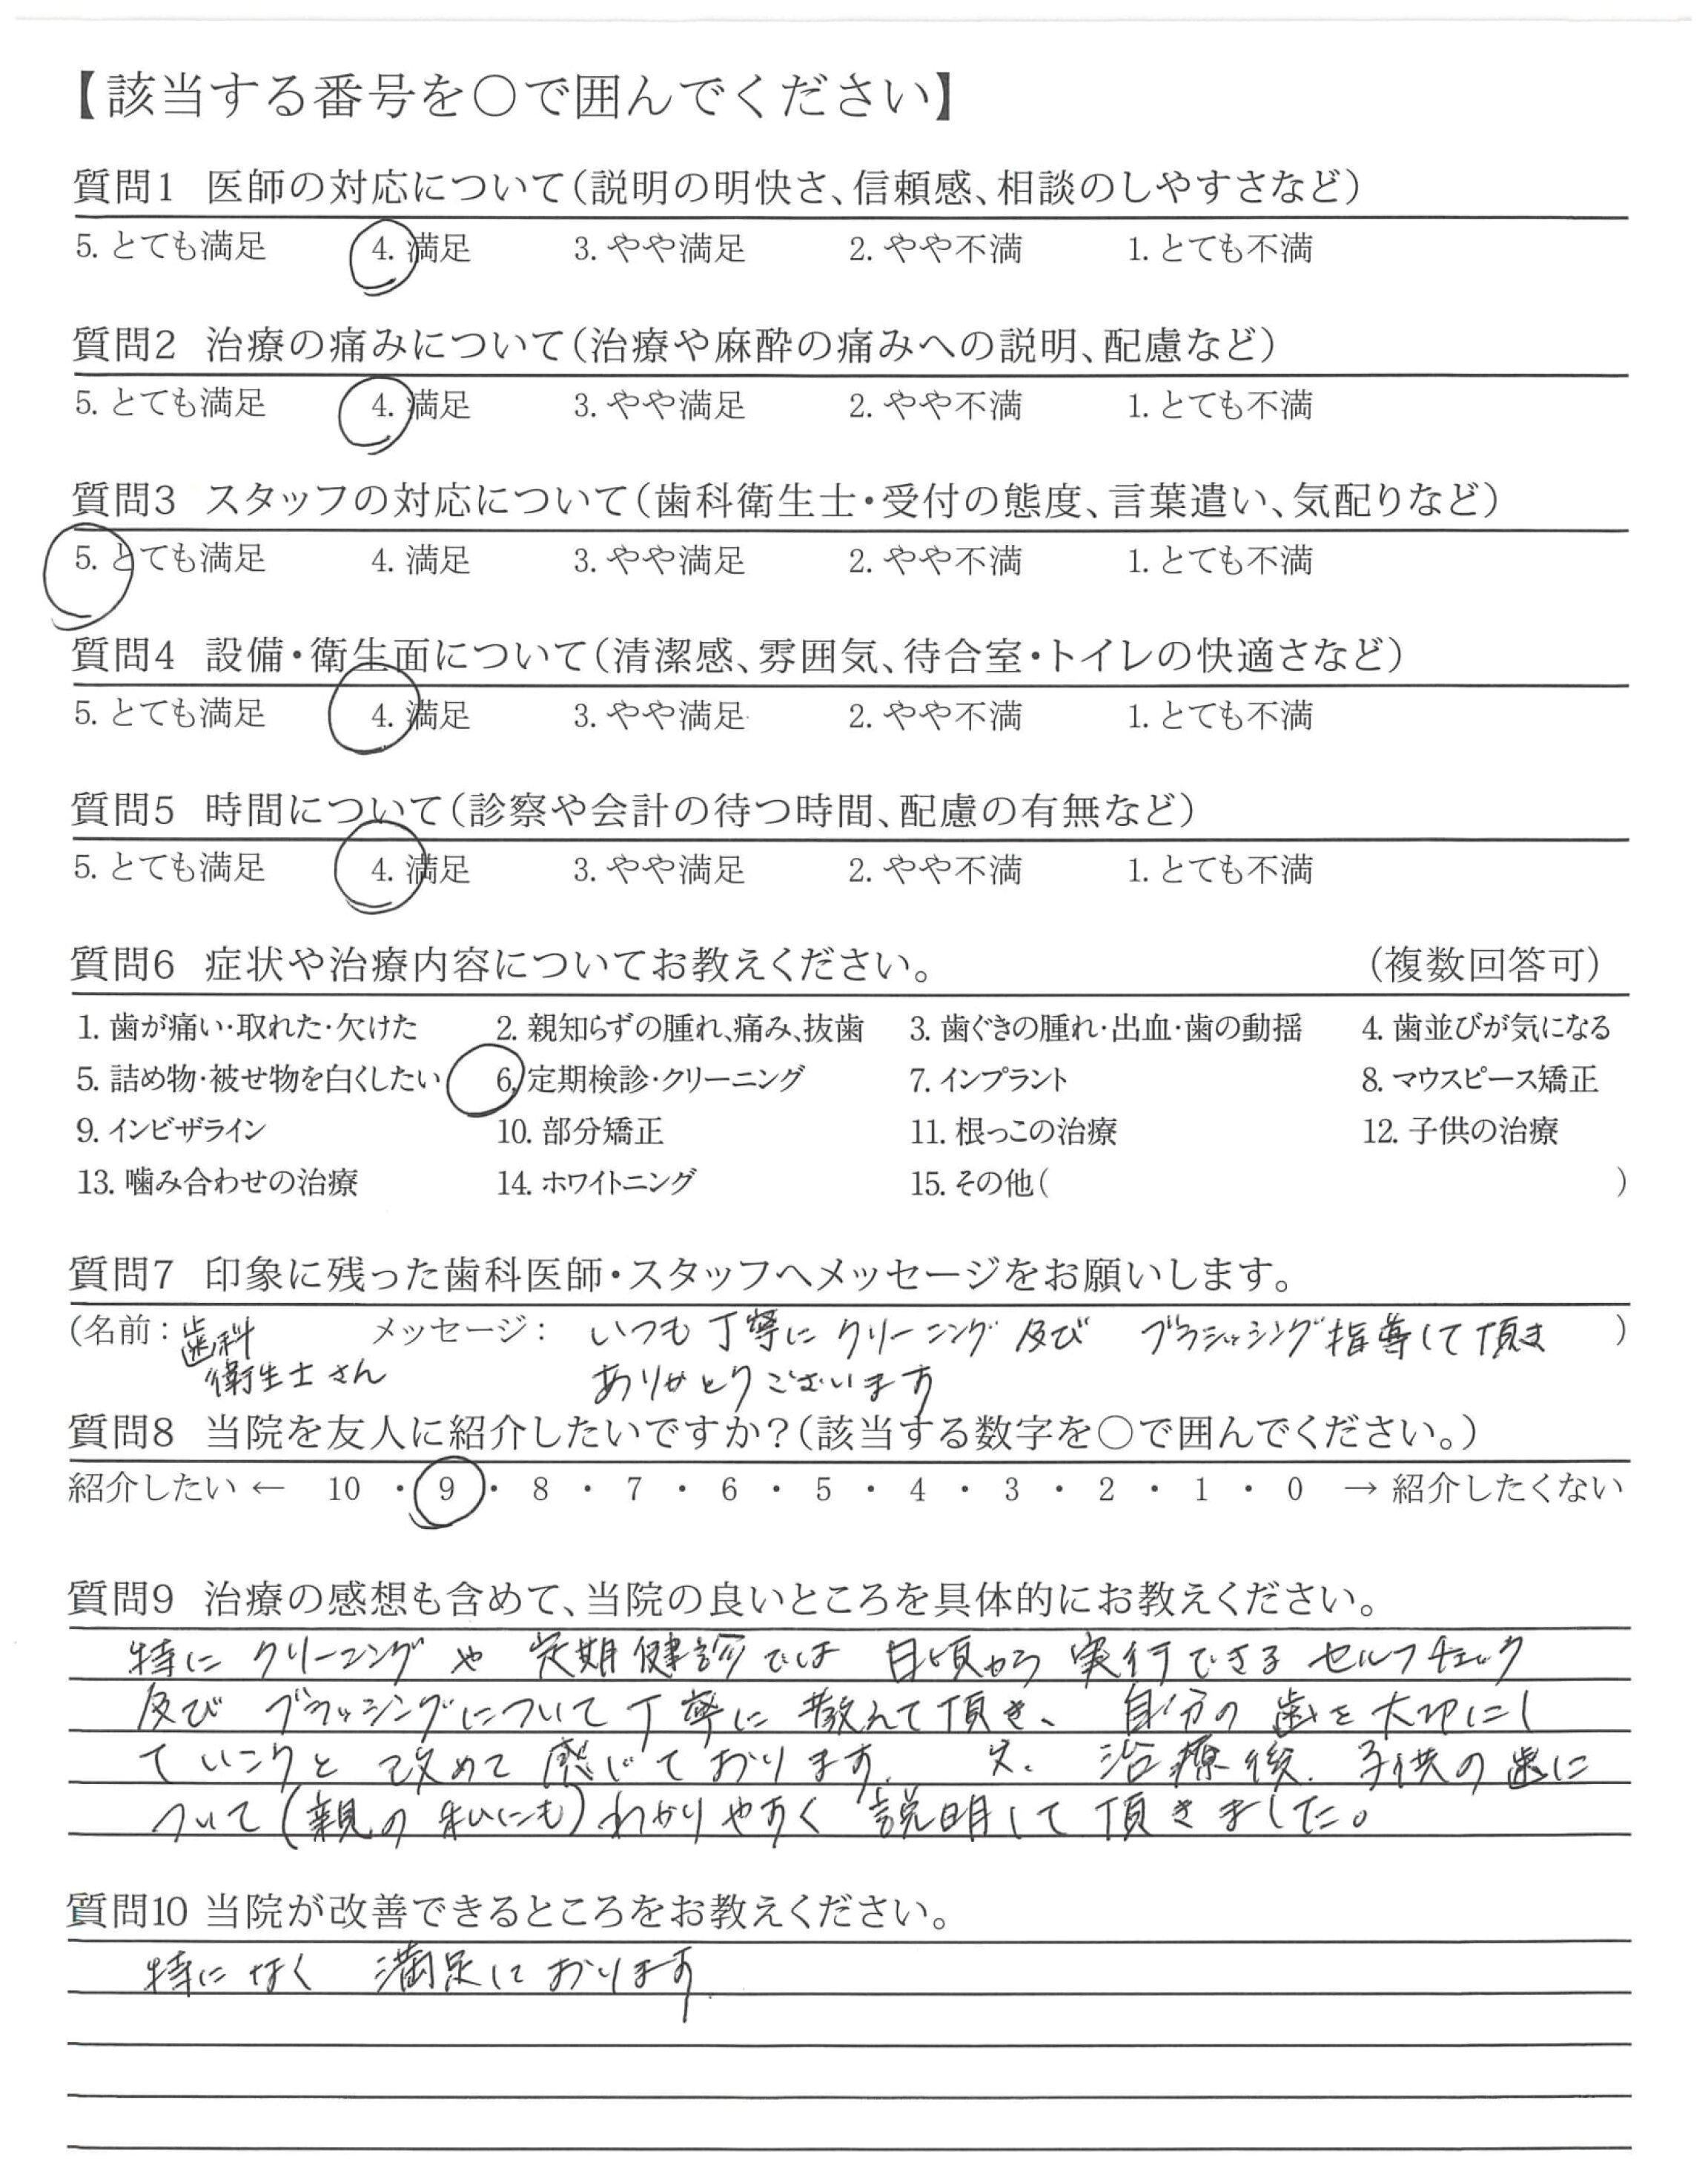 【該当する番号を〇で囲んでください】
質問1 医師の対応について(説明の明快さ、信頼感、相談のしやすさなど)
5. とても満足 4. 満足 3. やや満足 2. やや不満 1. とても不満
質問2 治療の痛みについて(治療や麻酔の痛みへの説明、配慮など)
5. とても満足 4. 満足 3. やや満足 2. やや不満 1. とても不満
質問3 スタッフの対応について(歯科衛生士・受付の態度、言葉遣い、気配りなど)
5. とても満足 4. 満足 3. やや満足 2. やや不満 1. とても不満
質問4 設備・衛生面について(清潔感、雰囲気、待合室・トイレの快適さなど)
5. とても満足 4. 満足 3. やや満足 2. やや不満 1. とても不満
質問5 時間について(診察や会計の待つ時間、配慮の有無など)
5. とても満足 4. 満足 3. やや満足 2. やや不満 1. とても不満
質問6 症状や治療内容についてお教えください。 (複数回答可)
1. 歯が痛い・取れた・欠けた 2. 親知らずの腫れ、痛み、抜歯 3. 歯ぐきの腫れ・出血・歯の動揺 4. 歯並びが気になる
5. 詰め物・被せ物を白くしたい 6. 定期検診・クリーニング 7. インプラント 8. マウスピース矯正
9. インビザライン 10. 部分矯正 11. 根っこの治療 12. 子供の治療
13. 噛み合わせの治療 14. ホワイトニング 15. その他( )
質問7 印象に残った歯科医師・スタッフへメッセージをお願いします。
(名前: 歯科 メッセージ: いつも丁寧にクリーニング及び ブラッシング指導して頂き )
衛生士さん ありがとうございます
質問8 当院を友人に紹介したいですか?(該当する数字を〇で囲んでください。)
紹介したい ← 10 ・ 9 ・ 8 ・ 7 ・ 6 ・ 5 ・ 4 ・ 3 ・ 2 ・ 1 ・ 0 → 紹介したくない
質問9 治療の感想も含めて、当院の良いところを具体的にお教えください。
特にクリーニングや 定期健診では 日頃から 実行できる セルフチェック
及び ブラッシングについて丁寧に 教えて頂き、 自分の歯を大切にし
ていこうと 改めて 感じて おります。 又、治療後、子供の歯に
ついて(親の私にも)わかりやすく 説明して 頂きました。
質問10 当院が改善できるところをお教えください。
特になく 満足しております。